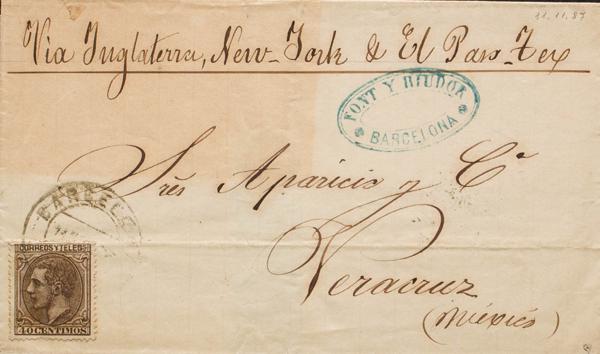 11.11.87
Via Inglaterra, New-York & El Paso-Tex
FONT Y RIUDOR
BARCELONA
Sres Aparicio y Cª
Veracruz
(México)
BARCELO
CORREOS Y TELEGS
40 CENTIMOS